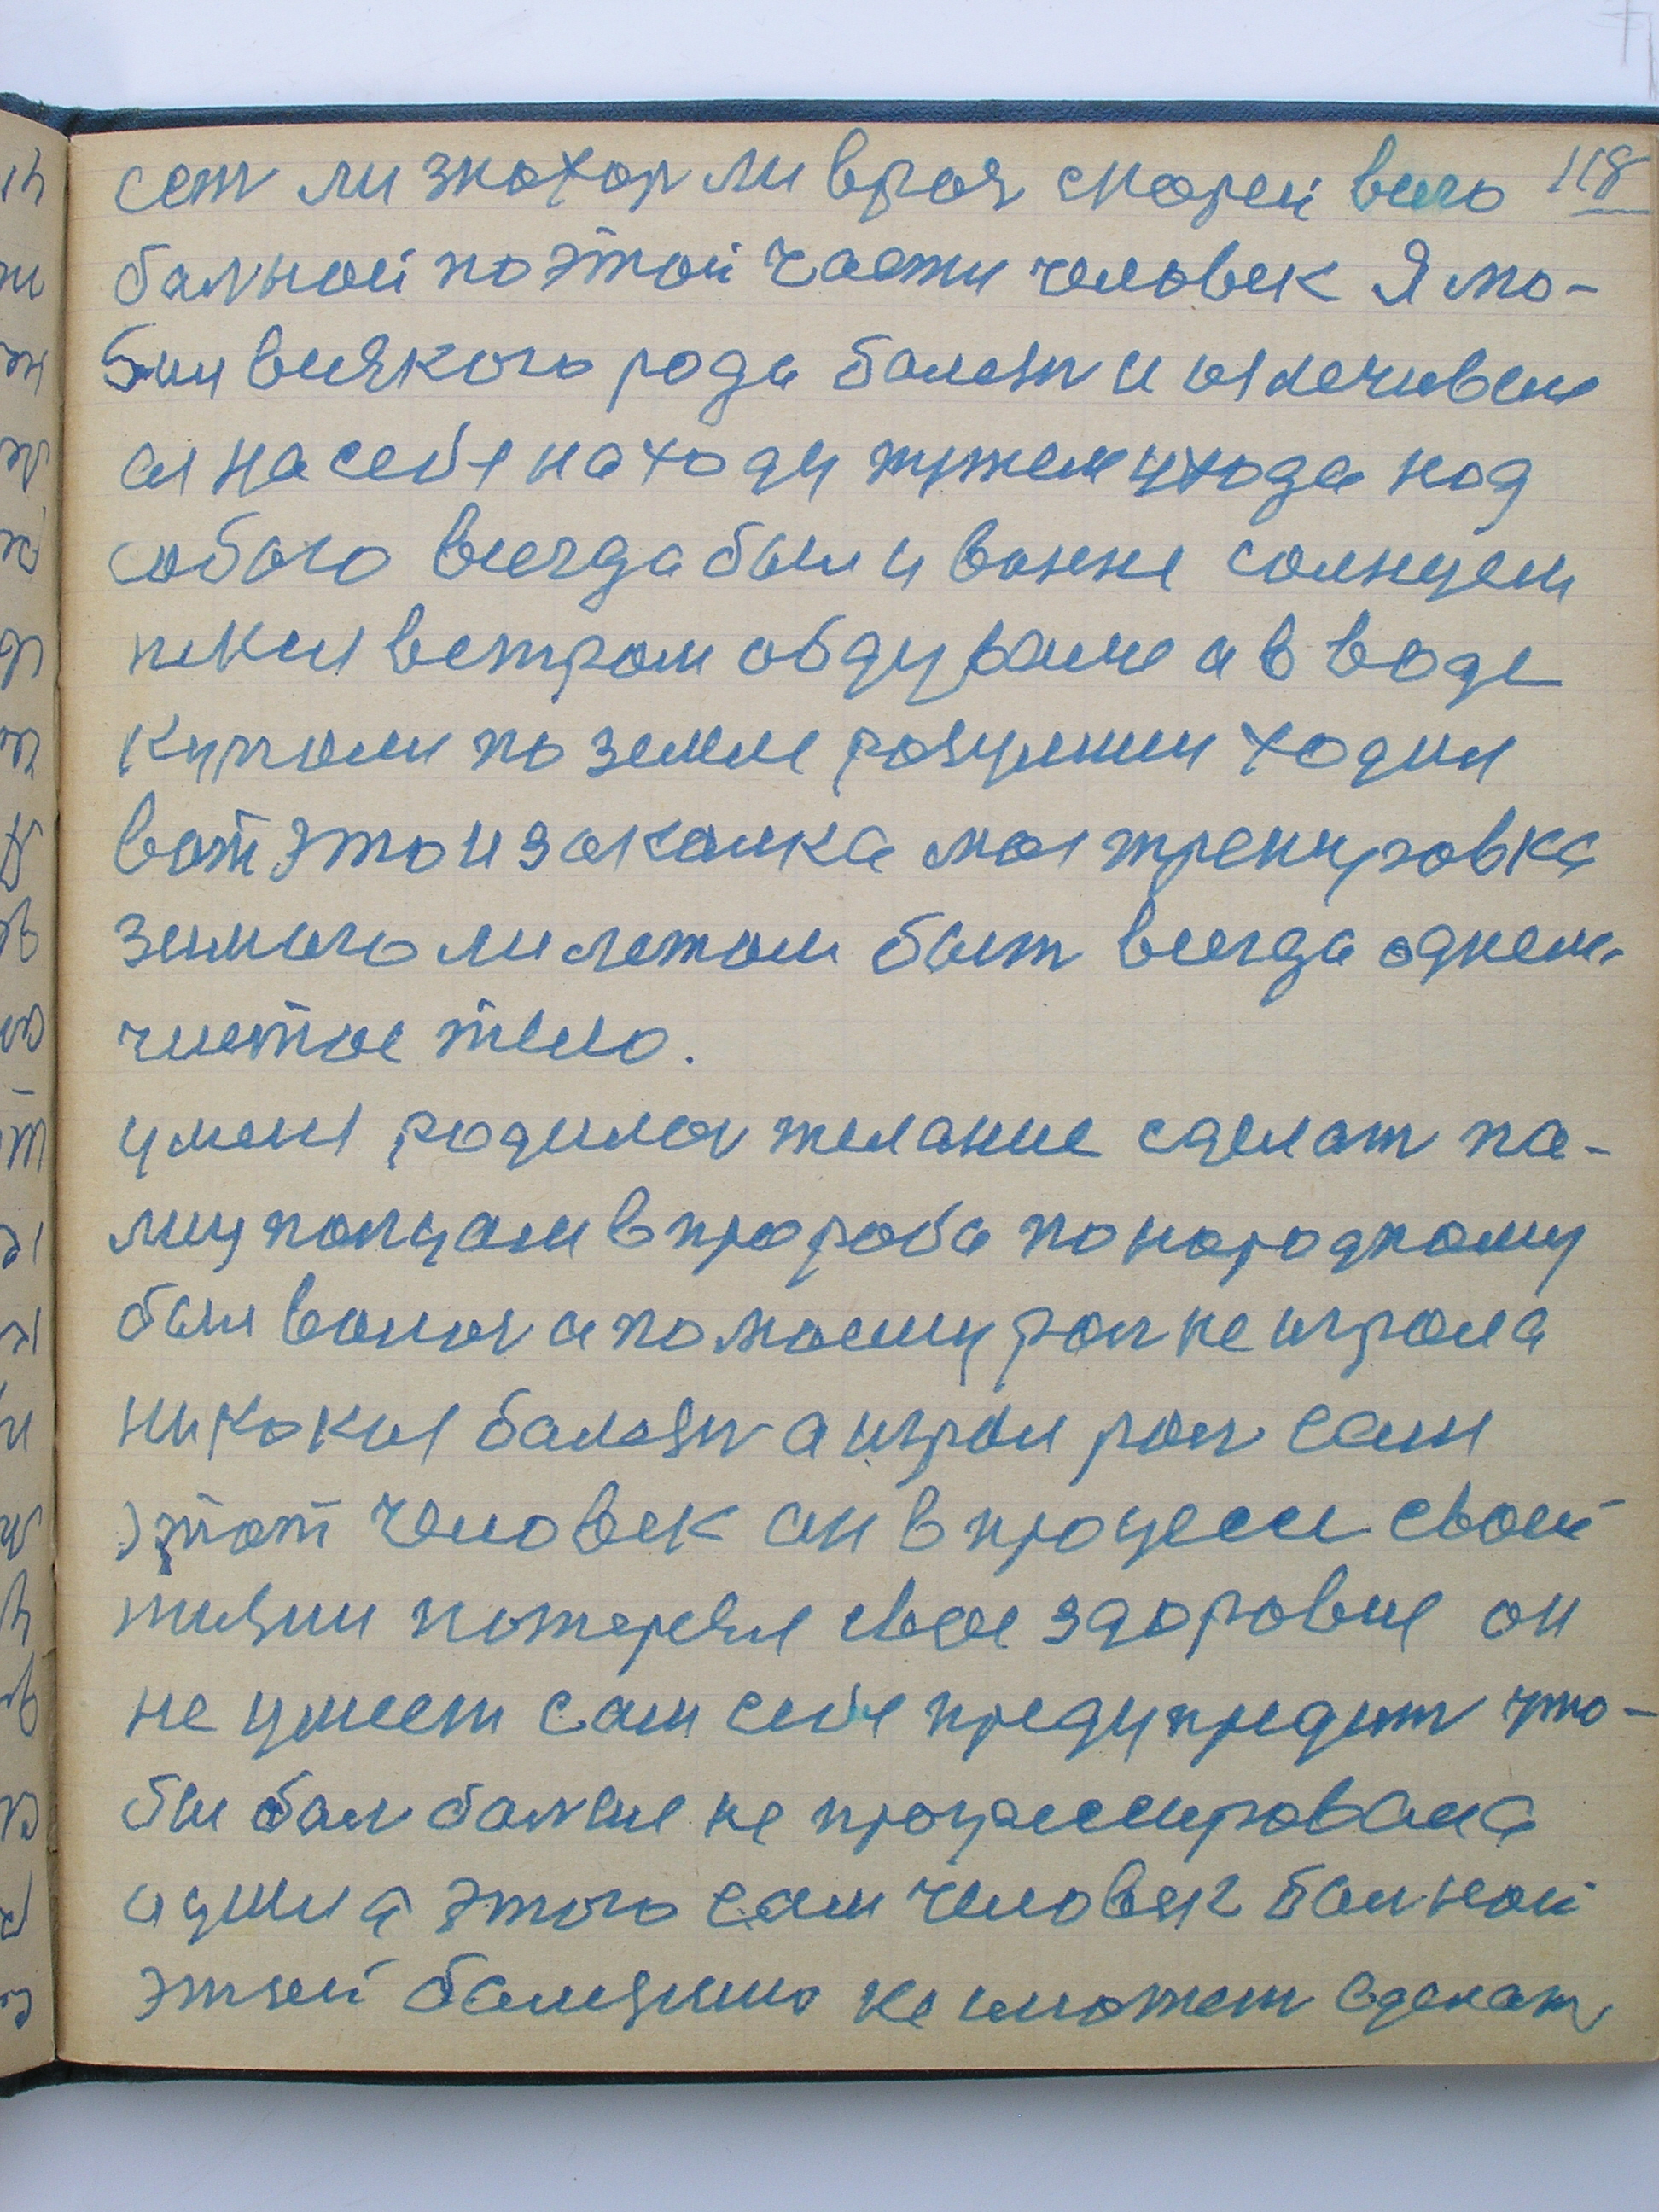 сет ли знохор ли врач скорей всего 118
балной по этой части человек Я лю-
бил всякого рода болезн и излечивал
ея на себе находу путем ухода над
собого всегда был и ванне солнцем
пекся ветром обдувался а в воде
купался по земле разумши ходил
вот это и закалка моя тренировка
зимого ли летом был всегда однем
чистое тело.
у меня родилос желание сделат па-
лицу попцам впророба по народному
был волос а по моему рол не играла
никокая балезн а играл рол сам
этот человек он в процесе своей
жизни потерял свое здоровие он
не умеет сам себе предупредит что-
бы бол болше не прогресировала
а душа этого сам человек балной
этией балезнию не может сделат